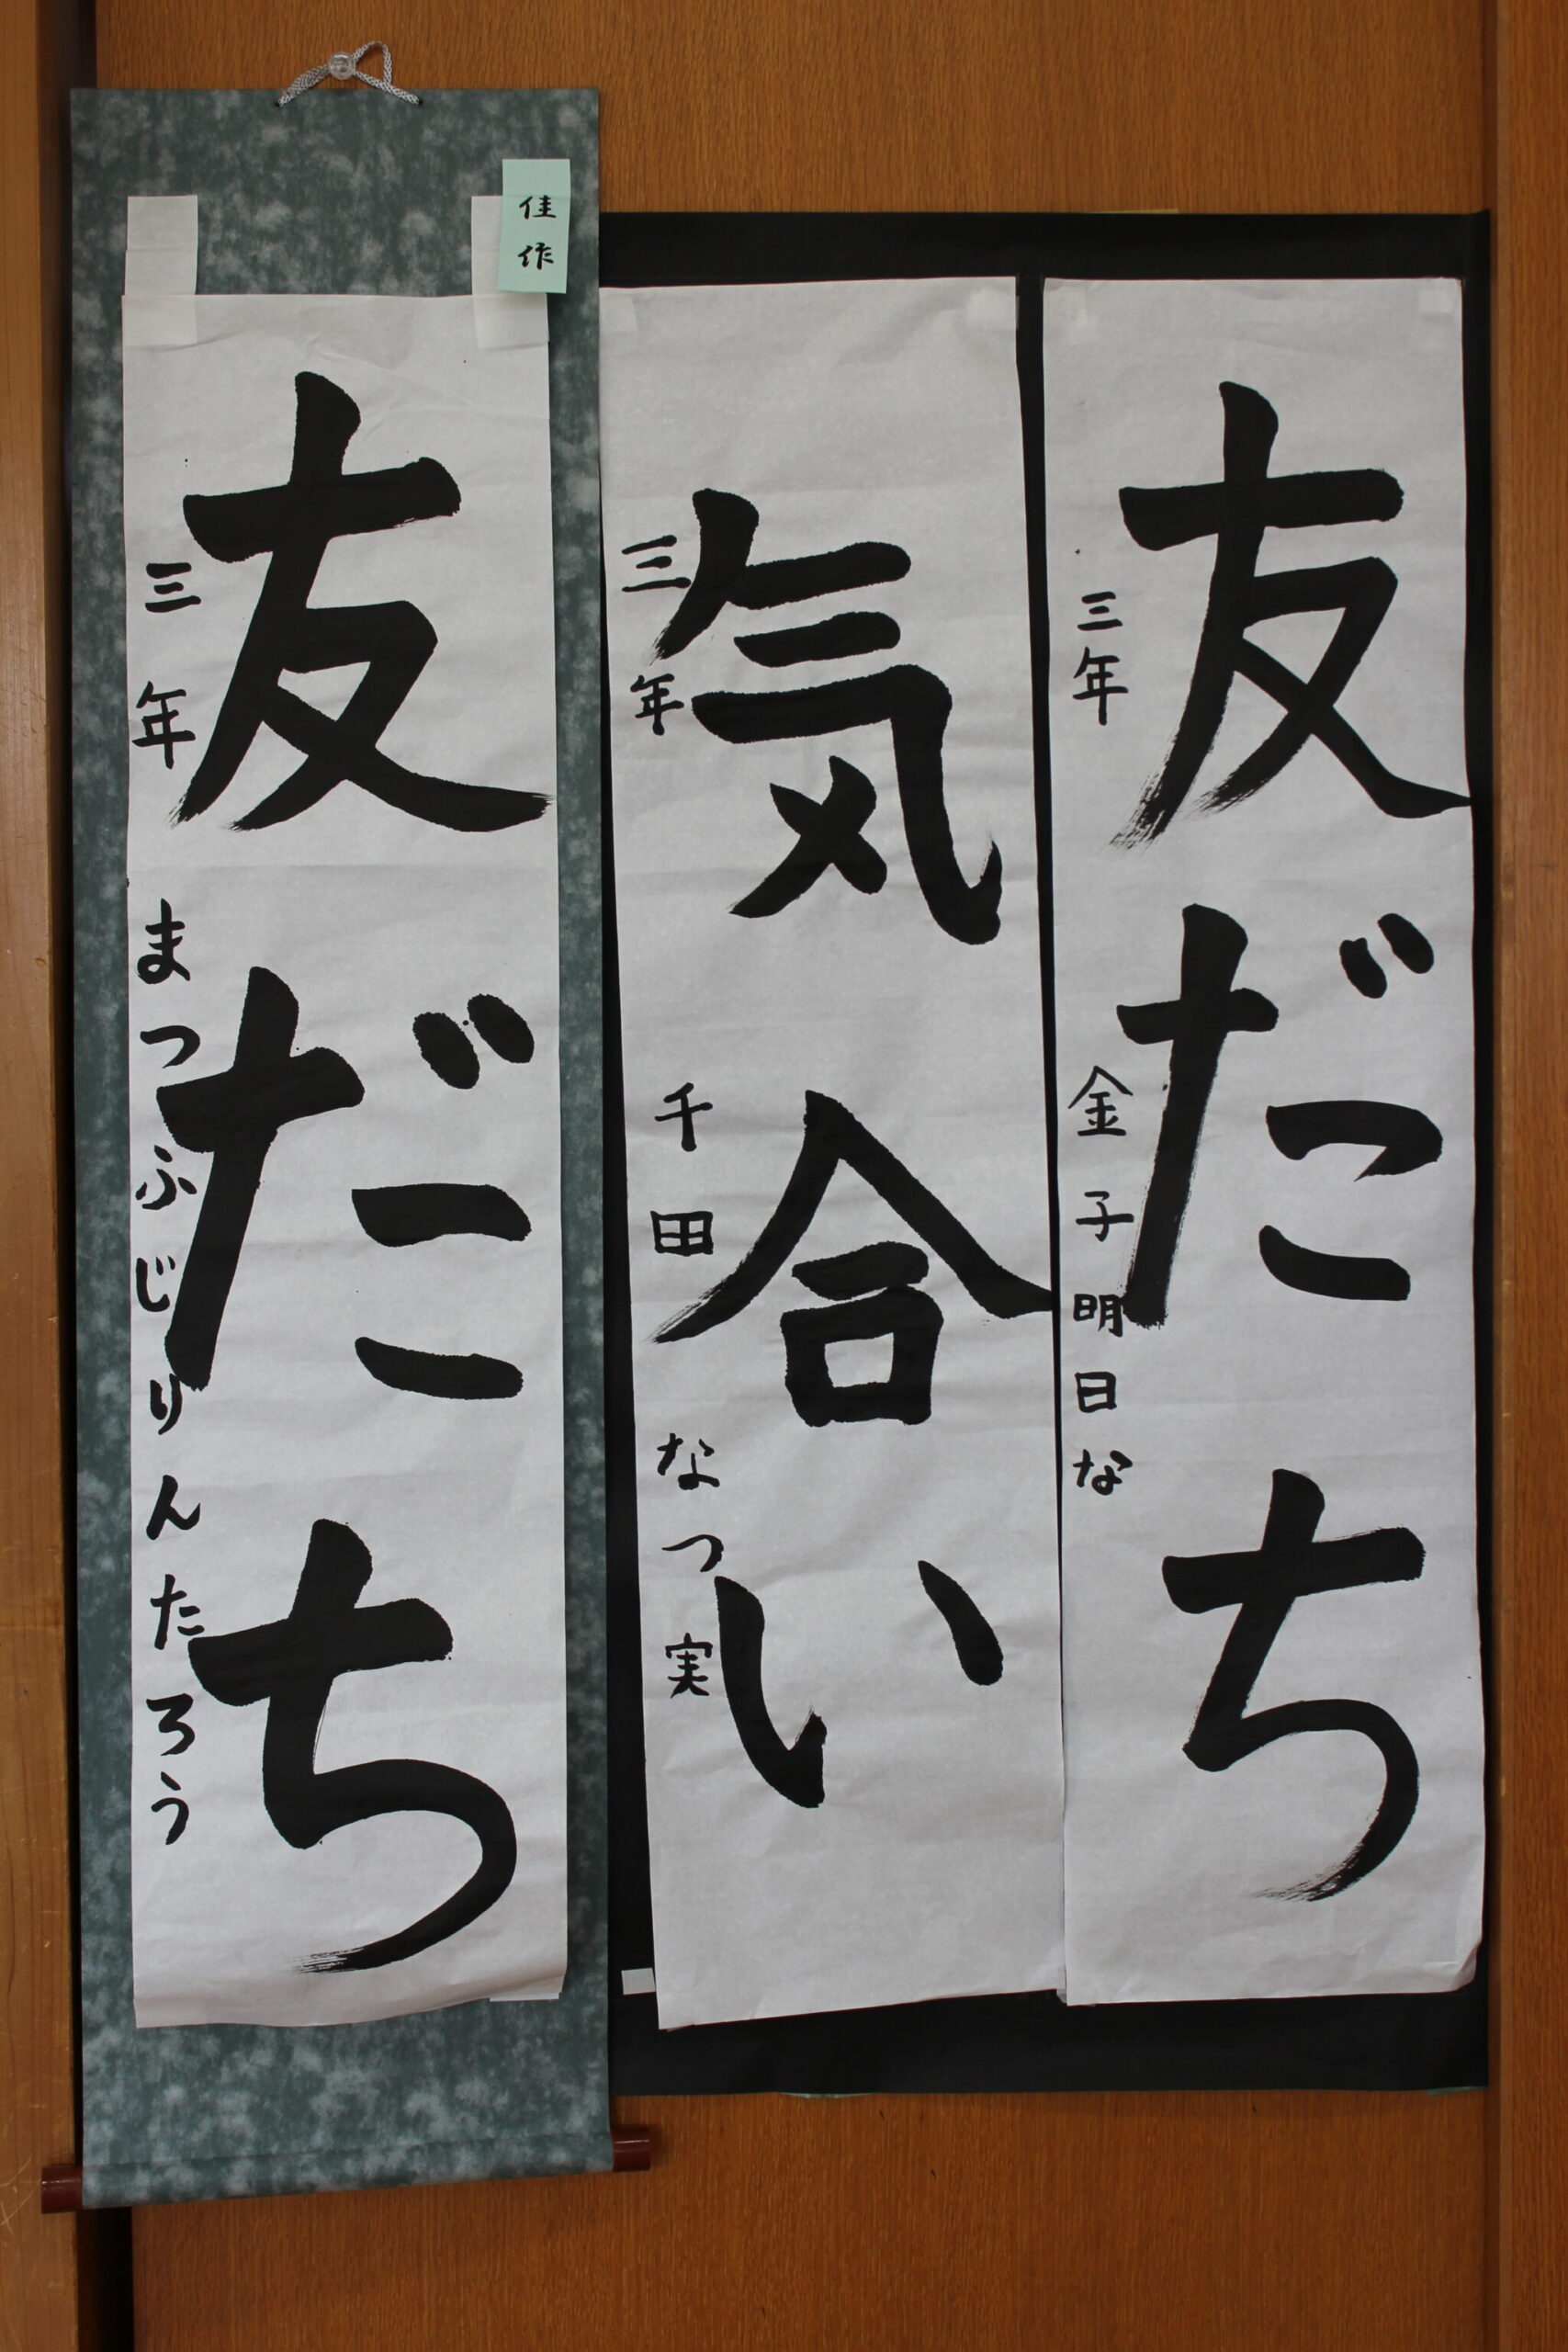 友だち
三年 金子明日な
気合い
三年 千田なつ実
佳作
友だち
三年 まつふじりんたろう